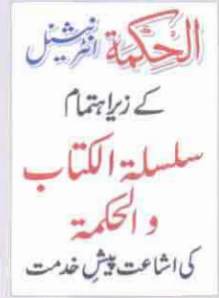 الحِكْمَة انٹرنیشنل
کے زیر اہتمام
سلسلۃ الکتاب
والحکمۃ
کی اشاعت پیش خدمت